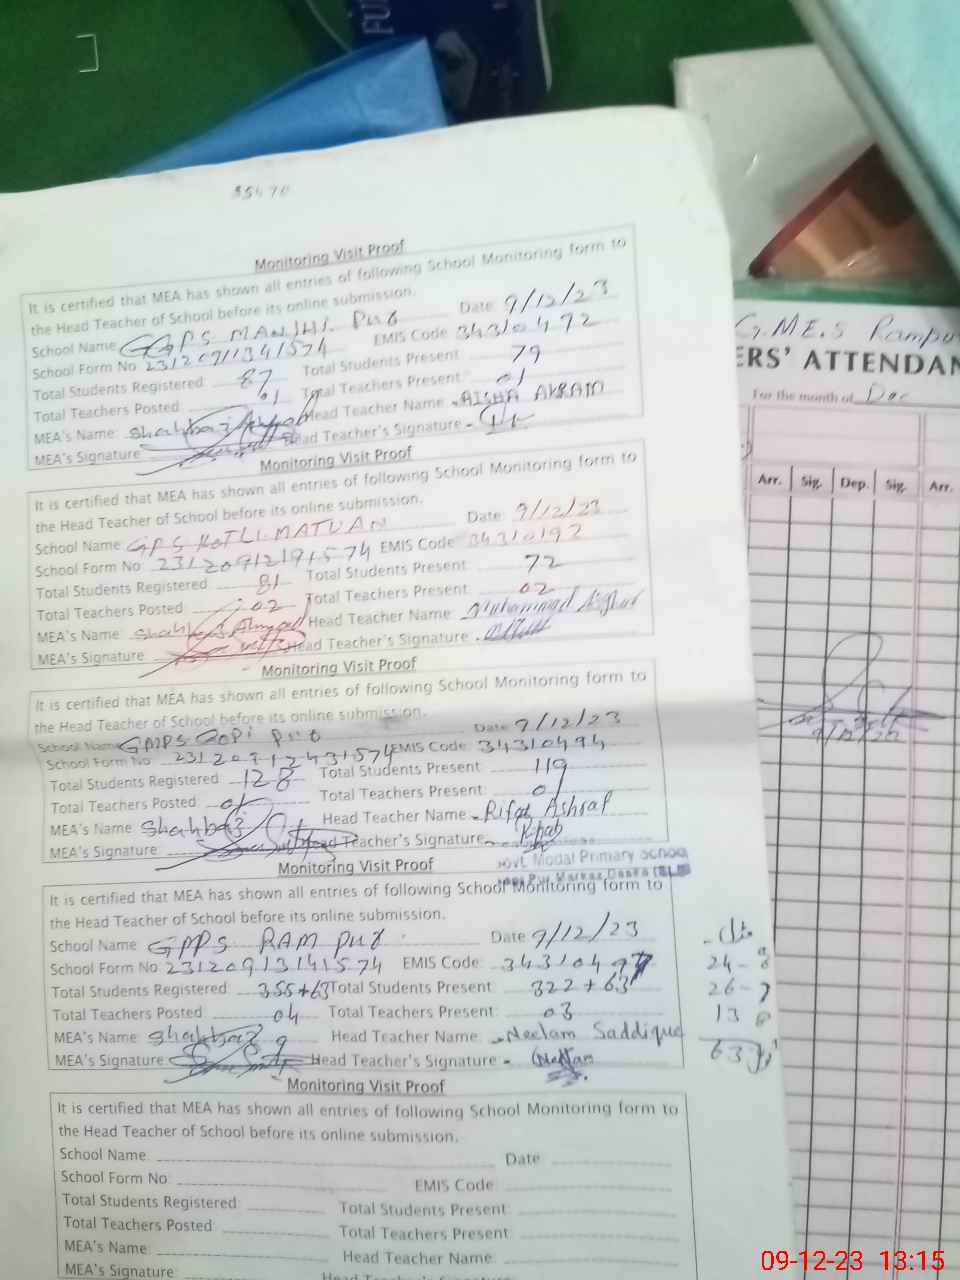 FU
35470
Monitoring Visit Proof
It is certified that MEA has shown all entries of following School Monitoring form to
the Head Teacher of School before its online submission.
School Name GGPS MANJHI PUR Date 9/12/23
School Form No 23120911341574 EMIS Code 34310472
Total Students Registered 87 Total Students Present 79
Total Teachers Posted 01 Total Teachers Present: 01
MEA's Name: Shahbaz Ahmad Head Teacher Name AISHA AKRAM
MEA's Signature Head Teacher's Signature
Monitoring Visit Proof
It is certified that MEA has shown all entries of following School Monitoring form to
the Head Teacher of School before its online submission.
School Name GPS KOTLI MATUAN Date 9/12/23
School Form No 23120912191574 EMIS Code 34310192
Total Students Registered 81 Total Students Present 72
Total Teachers Posted 02 Total Teachers Present: 02
MEA's Name: Shahbaz Ahmad Head Teacher Name: Muhammad
MEA's Signature Head Teacher's Signature
Monitoring Visit Proof
It is certified that MEA has shown all entries of following School Monitoring form to
the Head Teacher of School before its online submission.
School Name GMPS GOPI PUR Date 9/12/23
School Form No 23120912431574 EMIS Code 34310494
Total Students Registered 128 Total Students Present 119
Total Teachers Posted 01 Total Teachers Present: 01
MEA's Name Shahbaz Head Teacher Name Rifat Ashraf
MEA's Signature: Head Teacher's Signature
Govt. Modal Primary School
Monitoring Visit Proof
Pur Markaz Daska
It is certified that MEA has shown all entries of following School Monitoring form to
the Head Teacher of School before its online submission.
School Name GMPS RAM PUR Date 9/12/23
School Form No 23120913141574 EMIS Code: 3431049
Total Students Registered 355+63 Total Students Present 322+63
Total Teachers Posted 04 Total Teachers Present: 03
MEA's Name: Shahbaz Head Teacher Name: Neelam Saddique
MEA's Signature: Head Teacher's Signature Neelam
24
26
13
63
Monitoring Visit Proof
It is certified that MEA has shown all entries of following School Monitoring form to
the Head Teacher of School before its online submission.
School Name: Date
School Form No: EMIS Code:
Total Students Registered: Total Students Present:
Total Teachers Posted: Total Teachers Present:
MEA's Name: Head Teacher Name:
MEA's Signature: Head Teacher's Signature
G.M.E.S Rampur
ERS' ATTENDAN
For the month of Dec
Arr. Sig. Dep. Sig. Arr.
09-12-23 13:15